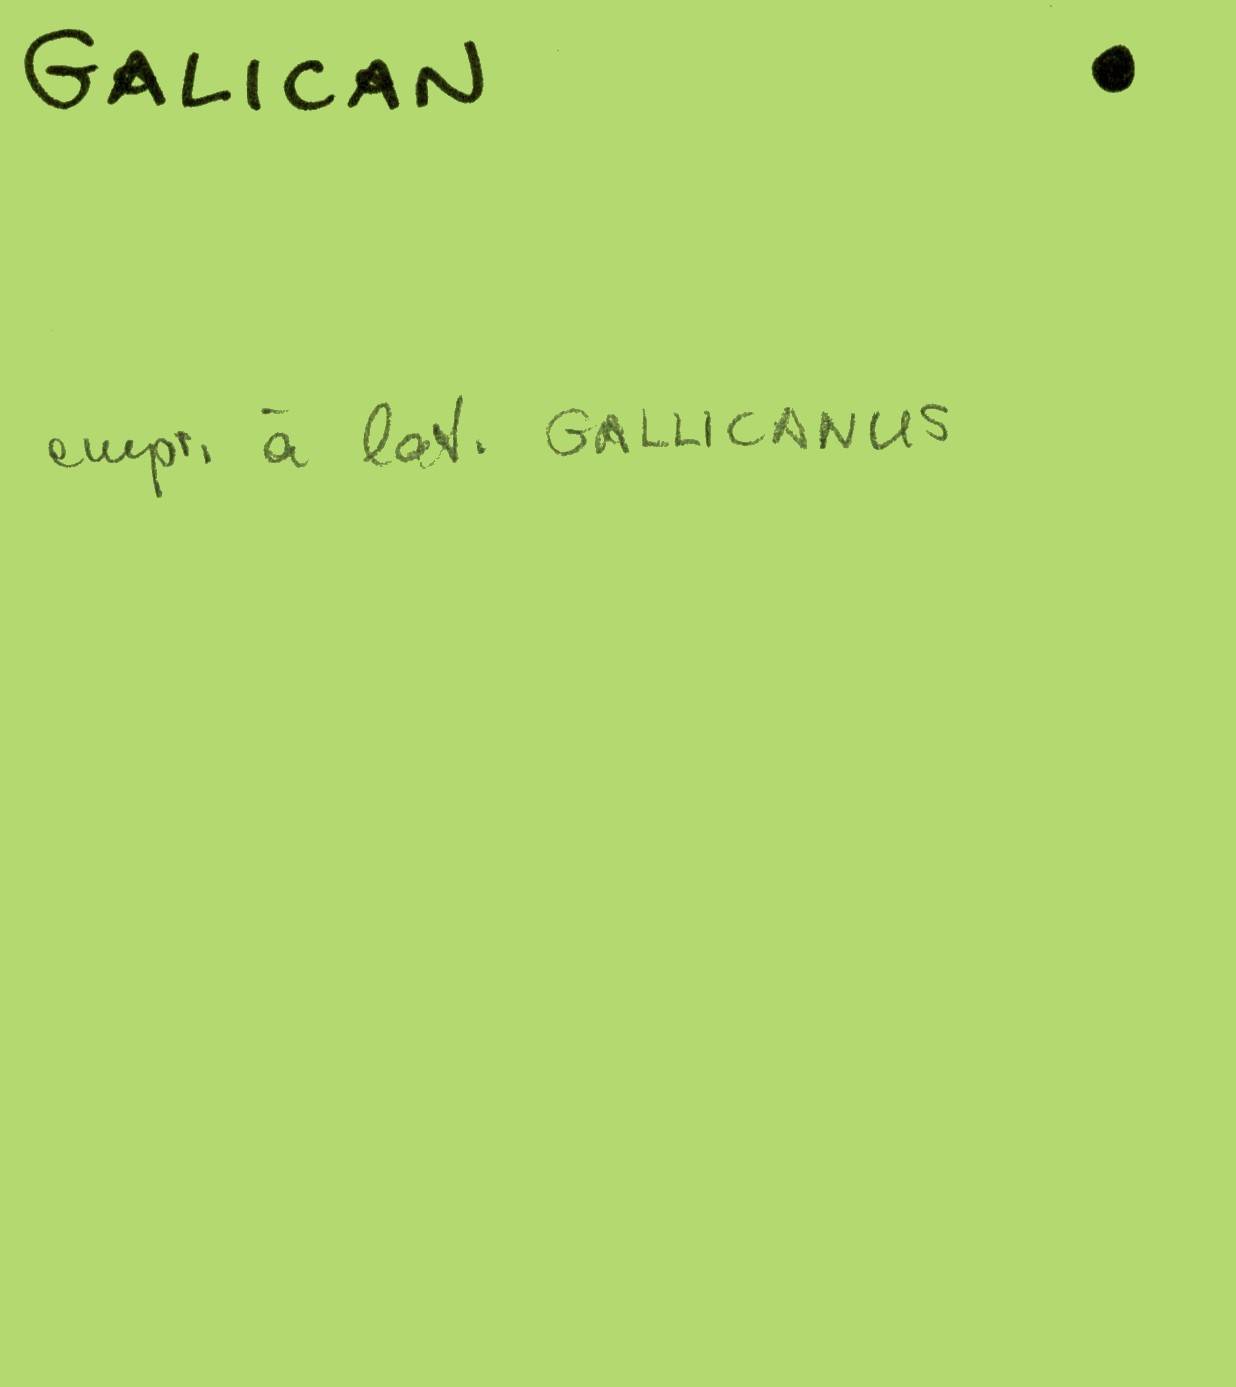 GALICAN
empr. à lat. GALLICANUS